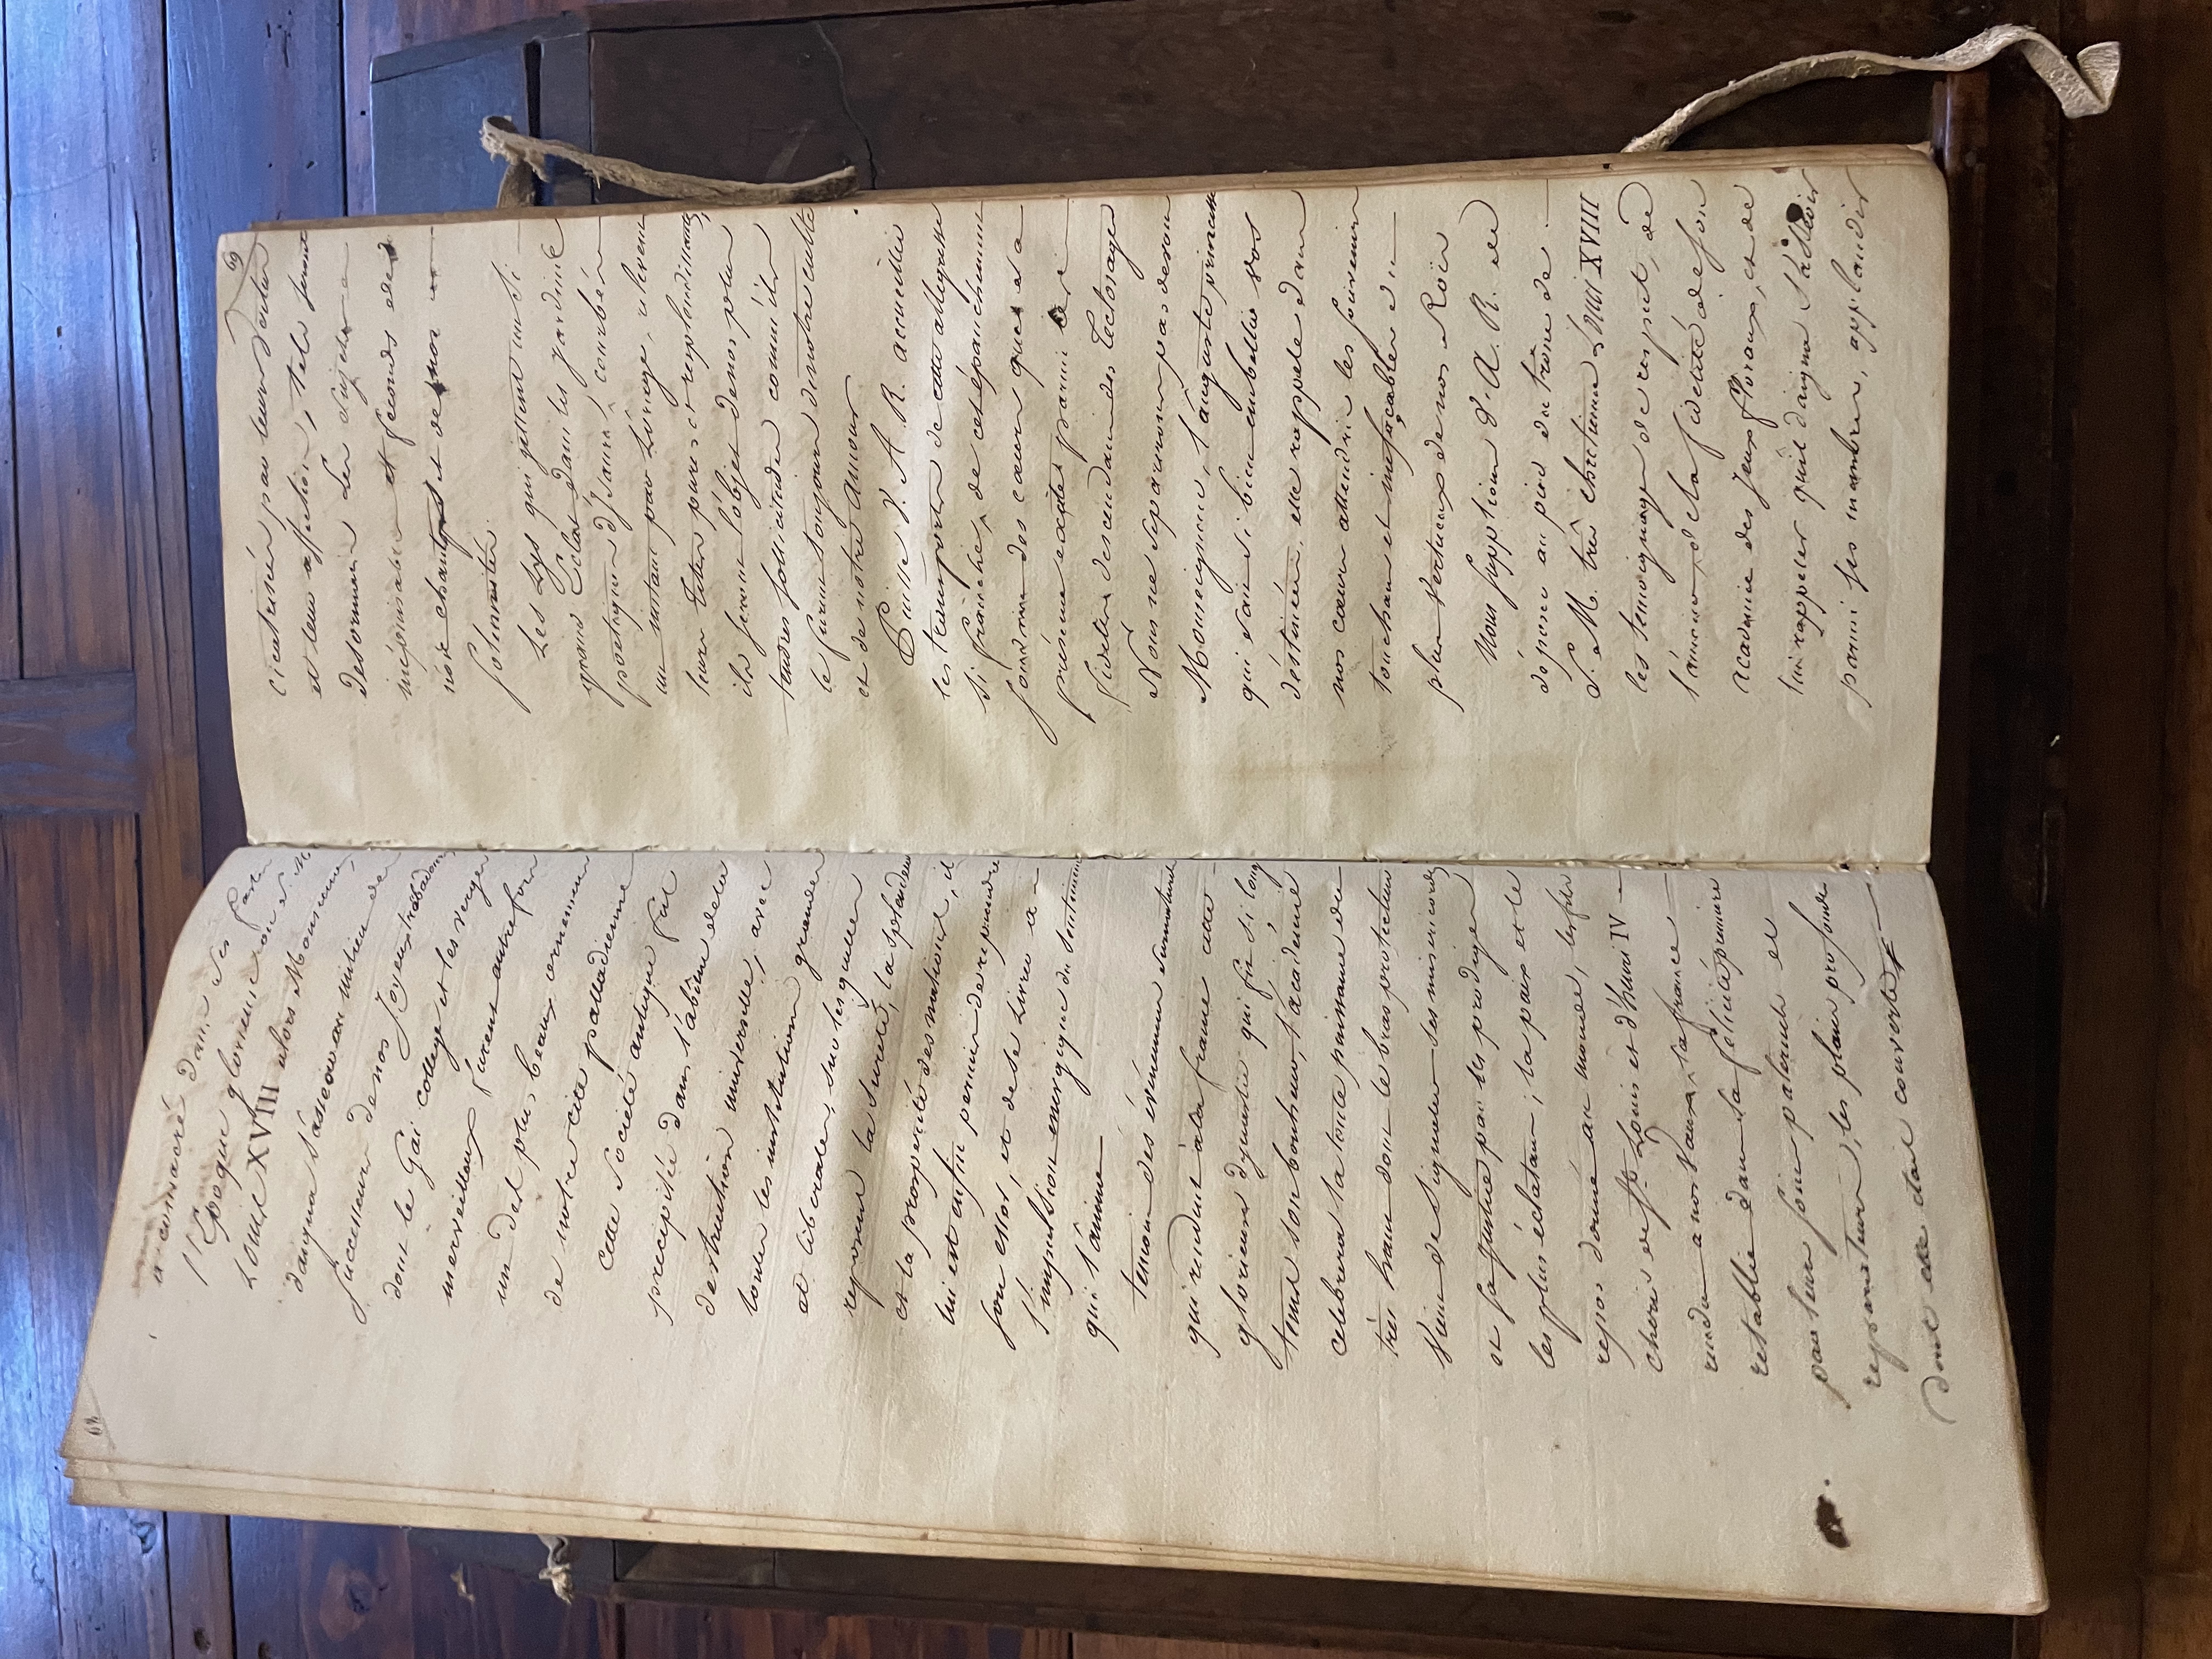 68
a consacré dans ses fastes
l'Epoque glorieuse où S. M.
LOUIS XVIII alors Monsieur,
daigna s'asseoir au milieu des
successeurs de nos Joyeux trobadors
dont le Gai college et les vergers
merveilleux furent autrefois
un des plus beaux ornemens
de notre cité palladienne
Cette Société antique fut
precipitée dans l'abîme de la
destruction universelle, avec
toutes les institutions grandes
et liberales, sur lesquelles
reposent la sureté, la splendeur
et la prosperité des nations, il
lui est enfin permis de reprendre
son essor, et de se livrer à
l'impulsion energique du sentiment
qui l'anime
temoin des évenemens surnaturels
qui rendent à la france cette
glorieuse dynastie qui fit si long
tems son bonheur, l'academie
celebrera la toute puissance du
très haut dont le bras protecteur
vient de signaler ses misericordes
et sa justice par les prodiges
les plus éclatans; la paix et le
repos donnés au monde, les fils
cheris de St. Louis et d'henri IV
rendus a nos vœux, la france
retablie dans sa felicité premiere
par leurs soins paternels et
reparateurs, les plaies profondes
dont elle etait couverte
69
cicatrisées par leurs vertus
et leur affection, tels seront
desormais les sujets
inépuisables et feconds de
nos chants et de nos
solennités.
Les Lys qui jettent un si
grand Eclat dans les jardins
poetiques d'Isaure, courbés
un instant par l'orage, relevent
leurs tetes pures et resplendissantes,
ils seront l'objet de nos plus
tendres sollicitudes comme ils
le furent toujours de notre culte
et de notre amour.
Puisse V. A. R. accueillir
les transports de cette allegresse
si franche, de cet épanchement
soudain des cœurs que sa
présence excite parmi les
fideles descendans des Tectosages
Nous ne separerons pas de vous
Monseigneur, l'auguste princesse
qui sait si bien embellir vos
destinées, elle rappele dans
nos cœurs attendris les souvenirs
touchans et ineffaçables du
plus vertueux de nos Rois
Nous supplions V. A. R. de
déposer au pied du trône de
S. M. très chretienne Louis XVIII
les temoignages de respect, de
l'amour et de la fidelité de son
academie des Jeux floraux, et de
lui rappeler qu'il daigna s'asseoir
parmi ses membres, applaudir